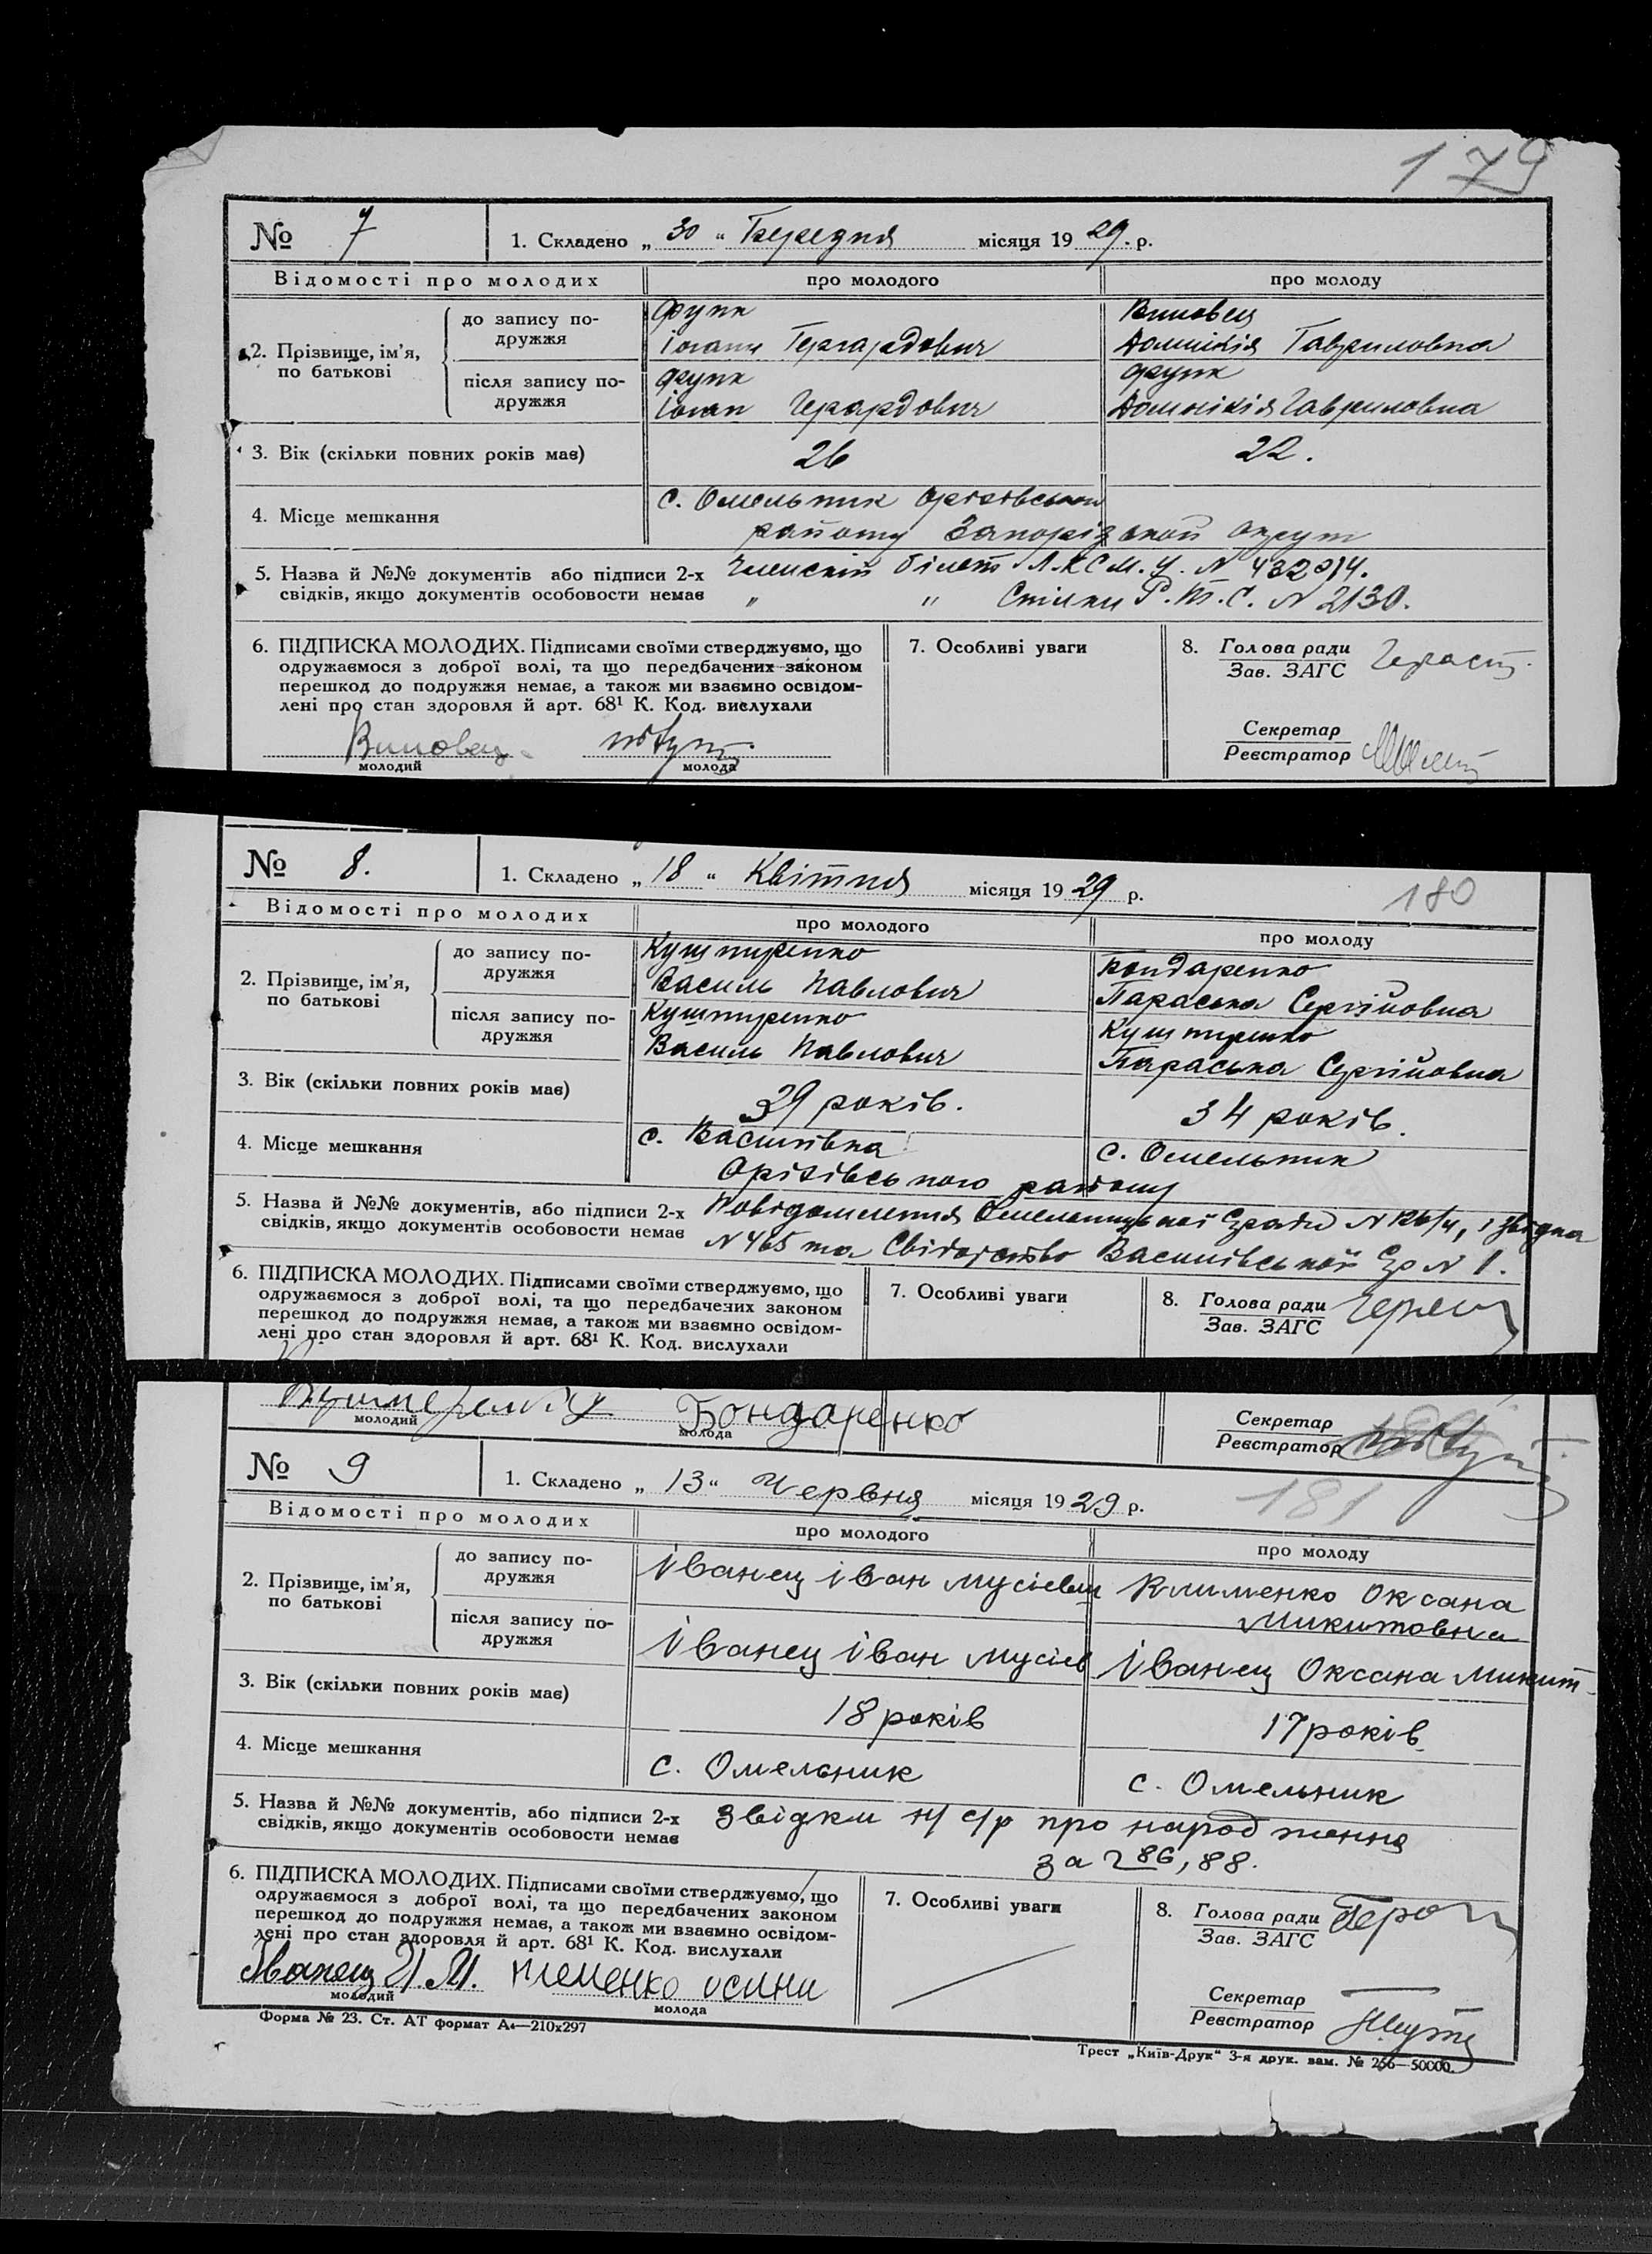 179
№ 7 1. Складено „ 30 “ Березня місяця 19 29. р.
Відомості про молодих про молодого про молоду
2. Прізвище, ім’я, по батькові
до запису подружжя
Функ
Іоганн Гергардович
Виновец
Домнікія Гавриловна
після запису подружжя
Функ
Іоган Герардович
Функ
Домнікія Гавриловна
3. Вік (скільки повних років має) 26 22.
4. Місце мешкання с. Омельник Оріхівського
району Запорізької округи
5. Назва й №№ документів або підписи 2-х Членский білет Л.К.С.М.У. N 432914.
свідків, якщо документів особовости немає „ „ Спілки Р.Т.С. N 2130.
6. ПІДПИСКА МОЛОДИХ. Підписами своїми стверджуємо, що
одружаємося з доброї волі, та що передбачених законом
перешкод до подружжя немає, а також ми взаємно освідом-
лені про стан здоровля й арт. 68¹ К. Код. вислухали
Виновец
молодий молода
7. Особливі уваги
8. Голова ради
Зав. ЗАГС
Секретар
Реєстратор
№ 8. 1. Складено „ 18 “ Квітня місяця 19 29 р. 180
Відомості про молодих про молодого про молоду
2. Прізвище, ім’я, по батькові
до запису подружжя
Кушниренко
Василь Павлович
Бондаренко
Параська Сергійовна
після запису подружжя
Кушниренко
Василь Павлович
Кушниренко
Параська Сергійовна
3. Вік (скільки повних років має) 39 років. 34 років.
4. Місце мешкання с. Василівка с. Омельник
Оріхівського району
5. Назва й №№ документів, або підписи 2-х Повідомлення Омельницької С/ради N 126/4, і звідка
свідків, якщо документів особовости немає N 465 та Свідоцтво Василівської С/р N 1.
6. ПІДПИСКА МОЛОДИХ. Підписами своїми стверджуємо, що
одружаємося з доброї волі, та що передбачених законом
перешкод до подружжя немає, а також ми взаємно освідом-
лені про стан здоровля й арт. 68¹ К. Код. вислухали
7. Особливі уваги
8. Голова ради
Зав. ЗАГС
Бондаренко
молодий молода
Секретар
Реєстратор
№ 9 1. Складено „ 13 “ Червня місяця 19 29 р. 181
Відомості про молодих про молодого про молоду
2. Прізвище, ім’я, по батькові
до запису подружжя
Іванец Іван Мусієвич
Клименко Оксана
Микитовна
після запису подружжя
Іванец Іван Мусієв
Іванец Оксана Микит
3. Вік (скільки повних років має) 18 років 17 років
4. Місце мешкання с. Омельник с. Омельник
5. Назва й №№ документів, або підписи 2-х Звідки н/ с/р про народження
свідків, якщо документів особовости немає за № 86, 88.
6. ПІДПИСКА МОЛОДИХ. Підписами своїми стверджуємо, що
одружаємося з доброї волі, та що передбачених законом
перешкод до подружжя немає, а також ми взаємно освідом-
лені про стан здоровля й арт. 68¹ К. Код. вислухали
Іванец И. М.
молодий молода
7. Особливі уваги
8. Голова ради
Зав. ЗАГС
Секретар
Реєстратор
Форма № 23. Ст. АТ формат А₄—210х297
Трест „Київ-Друк“ 3-я друк. зам. № 256—50000.